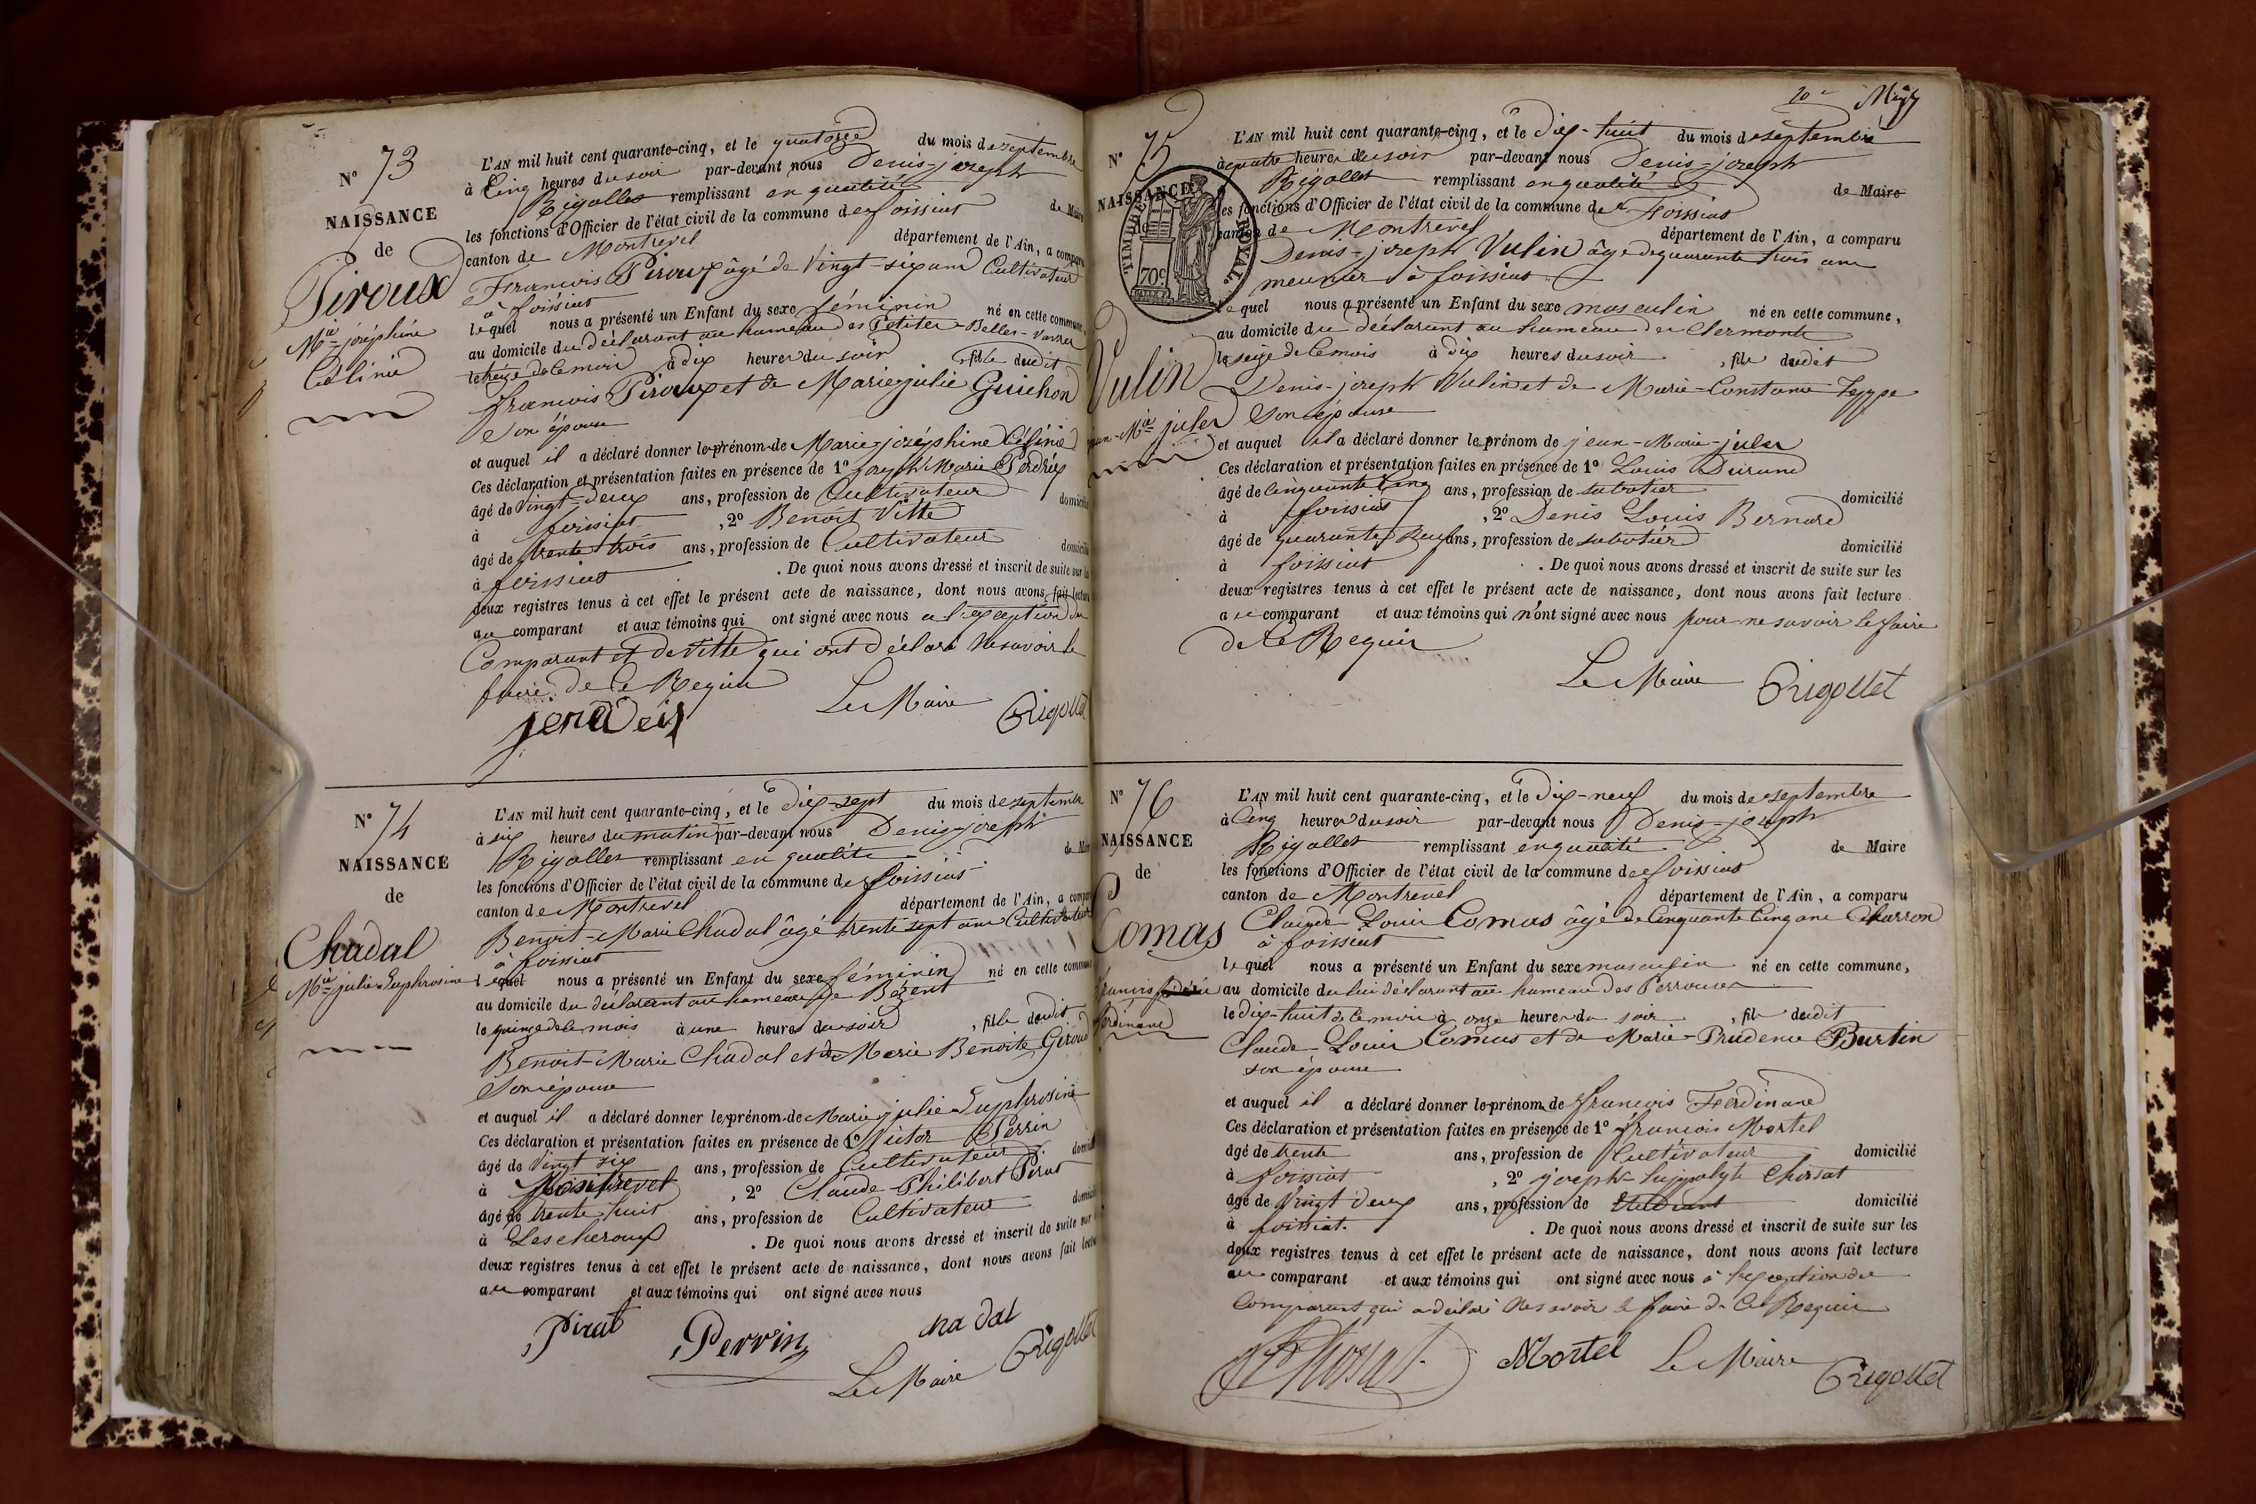 N° 73
NAISSANCE
de
Piroux
Mie joséphine
Célinie
L'AN mil huit cent quarante-cinq, et le quatorze du mois de septembre
à Cinq heures du soir par-devant nous Denis-joseph
Rigollet remplissant en qualité de Maire
les fonctions d'Officier de l'état civil de la commune de foissiat
canton de Montrevel département de l'Ain, a comparu
François Piroux âgé de Vingt-six ans Cultivateur
à foissiat
lequel nous a présenté un Enfant du sexe féminin né en cette commune,
au domicile du déclarant au hameau des Petites-Belles-
le treize de ce mois à dix heures du soir fille dudit
françois Piroux et de Marie-julie Guichon
Son épouse
et auquel il a déclaré donner le prénom de Marie-joséphine Célinie
Ces déclaration et présentation faites en présence de 1° joseph Marie
âgé de Vingt-deux ans, profession de Cultivateur domicilié
à foissiat, 2° Benoit Vitte
âgé de trente trois ans, profession de Cultivateur domicilié
à foissiat. De quoi nous avons dressé et inscrit de suite sur les
deux registres tenus à cet effet le présent acte de naissance, dont nous avons fait lecture
au comparant et aux témoins qui ont signé avec nous a l'exception du
Comparant et de Vitte qui ont déclaré ne savoir le
faire de ce Requis
Le Maire Rigollet
N° 74
NAISSANCE
de
Chadal
Mie julie Euphrosine
L'AN mil huit cent quarante-cinq, et le dix-sept du mois de septembre
à six heures du matin par-devant nous Denis-joseph
Rigollet remplissant en qualité de Maire
les fonctions d'Officier de l'état civil de la commune de foissiat
canton de Montrevel département de l'Ain, a comparu
Benoit-Marie Chadal âgé trente sept ans Cultivateur
à foissiat
lequel nous a présenté un Enfant du sexe féminin né en cette commune
au domicile du déclarant au hameau de Bézent
le quinze de ce mois à une heures du soir, fille dudit
Benoit-Marie Chadal et de Marie Benoite Giroud
Son épouse
et auquel il a déclaré donner le prénom de Marie-julie Euphrosine
Ces déclaration et présentation faites en présence de 1° Victor Perrin
âgé de Vingt six ans, profession de Cultivateur domicilié
à Montrevel, 2° Claude-Philibert Pirat
âgé de trente huit ans, profession de Cultivateur domicilié
à Lescheroux. De quoi nous avons dressé et inscrit de suite sur les
deux registres tenus à cet effet le présent acte de naissance, dont nous avons fait lecture
au comparant et aux témoins qui ont signé avec nous
Pirat Perrin chadal
Le Maire Rigollet
20
N° 75
NAISSANCE
TIMBRE ROYAL
70c
Vulin
jean-Mie jules
L'AN mil huit cent quarante-cinq, et le Dix-huit du mois de septembre
à quatre heures du soir par-devant nous Denis-joseph
Rigollet remplissant en qualité de Maire
les fonctions d'Officier de l'état civil de la commune de Foissiat
canton de Montrevel département de l'Ain, a comparu
Denis-joseph Vulin âgé de quarante trois ans
meunier à foissiat
lequel nous a présenté un Enfant du sexe masculin né en cette commune,
au domicile du déclarant au hameau de Clermonts
le seize de ce mois à dix heures du soir, fils dudit
Denis-joseph Vulin et de Marie-Constance
Son épouse
et auquel il a déclaré donner le prénom de jean-Marie-jules
Ces déclaration et présentation faites en présence de 1° Louis Durand
âgé de Cinquante Cinq ans, profession de sabotier domicilié
à foissiat, 2° Denis Louis Bernard
âgé de quarante Neuf ans, profession de sabotier domicilié
à foissiat. De quoi nous avons dressé et inscrit de suite sur les
deux registres tenus à cet effet le présent acte de naissance, dont nous avons fait lecture
au comparant et aux témoins qui n'ont signé avec nous pour ne savoir le faire
de ce Requis
Le Maire Rigollet
N° 76
NAISSANCE
de
Comas
françois
ferdinand
L'AN mil huit cent quarante-cinq, et le Dix-neuf du mois de septembre
à Cinq heures du soir par-devant nous Denis-joseph
Rigollet remplissant en qualité de Maire
les fonctions d'Officier de l'état civil de la commune de foissiat
canton de Montrevel département de l'Ain, a comparu
Claude Louis Comas âgé de Cinquante Cinq ans Charron
à foissiat
lequel nous a présenté un Enfant du sexe masculin né en cette commune,
au domicile du lui déclarant au hameau des Perrouses
le Dix-huit de ce mois à onze heures du soir, fils dudit
Claude-Louis Comas et de Marie-Prudence Burtin
son épouse
et auquel il a déclaré donner le prénom de françois Ferdinand
Ces déclaration et présentation faites en présence de 1° françois Mortel
âgé de trente ans, profession de Cultivateur domicilié
à foissiat, 2° joseph hippolyte Chossat
âgé de Vingt deux ans, profession de Etudiant domicilié
à foissiat. De quoi nous avons dressé et inscrit de suite sur les
deux registres tenus à cet effet le présent acte de naissance, dont nous avons fait lecture
au comparant et aux témoins qui ont signé avec nous à l'exception du
Comparant qui a déclaré ne savoir le faire de Ce Requis
Chossat Mortel Le Maire Rigollet